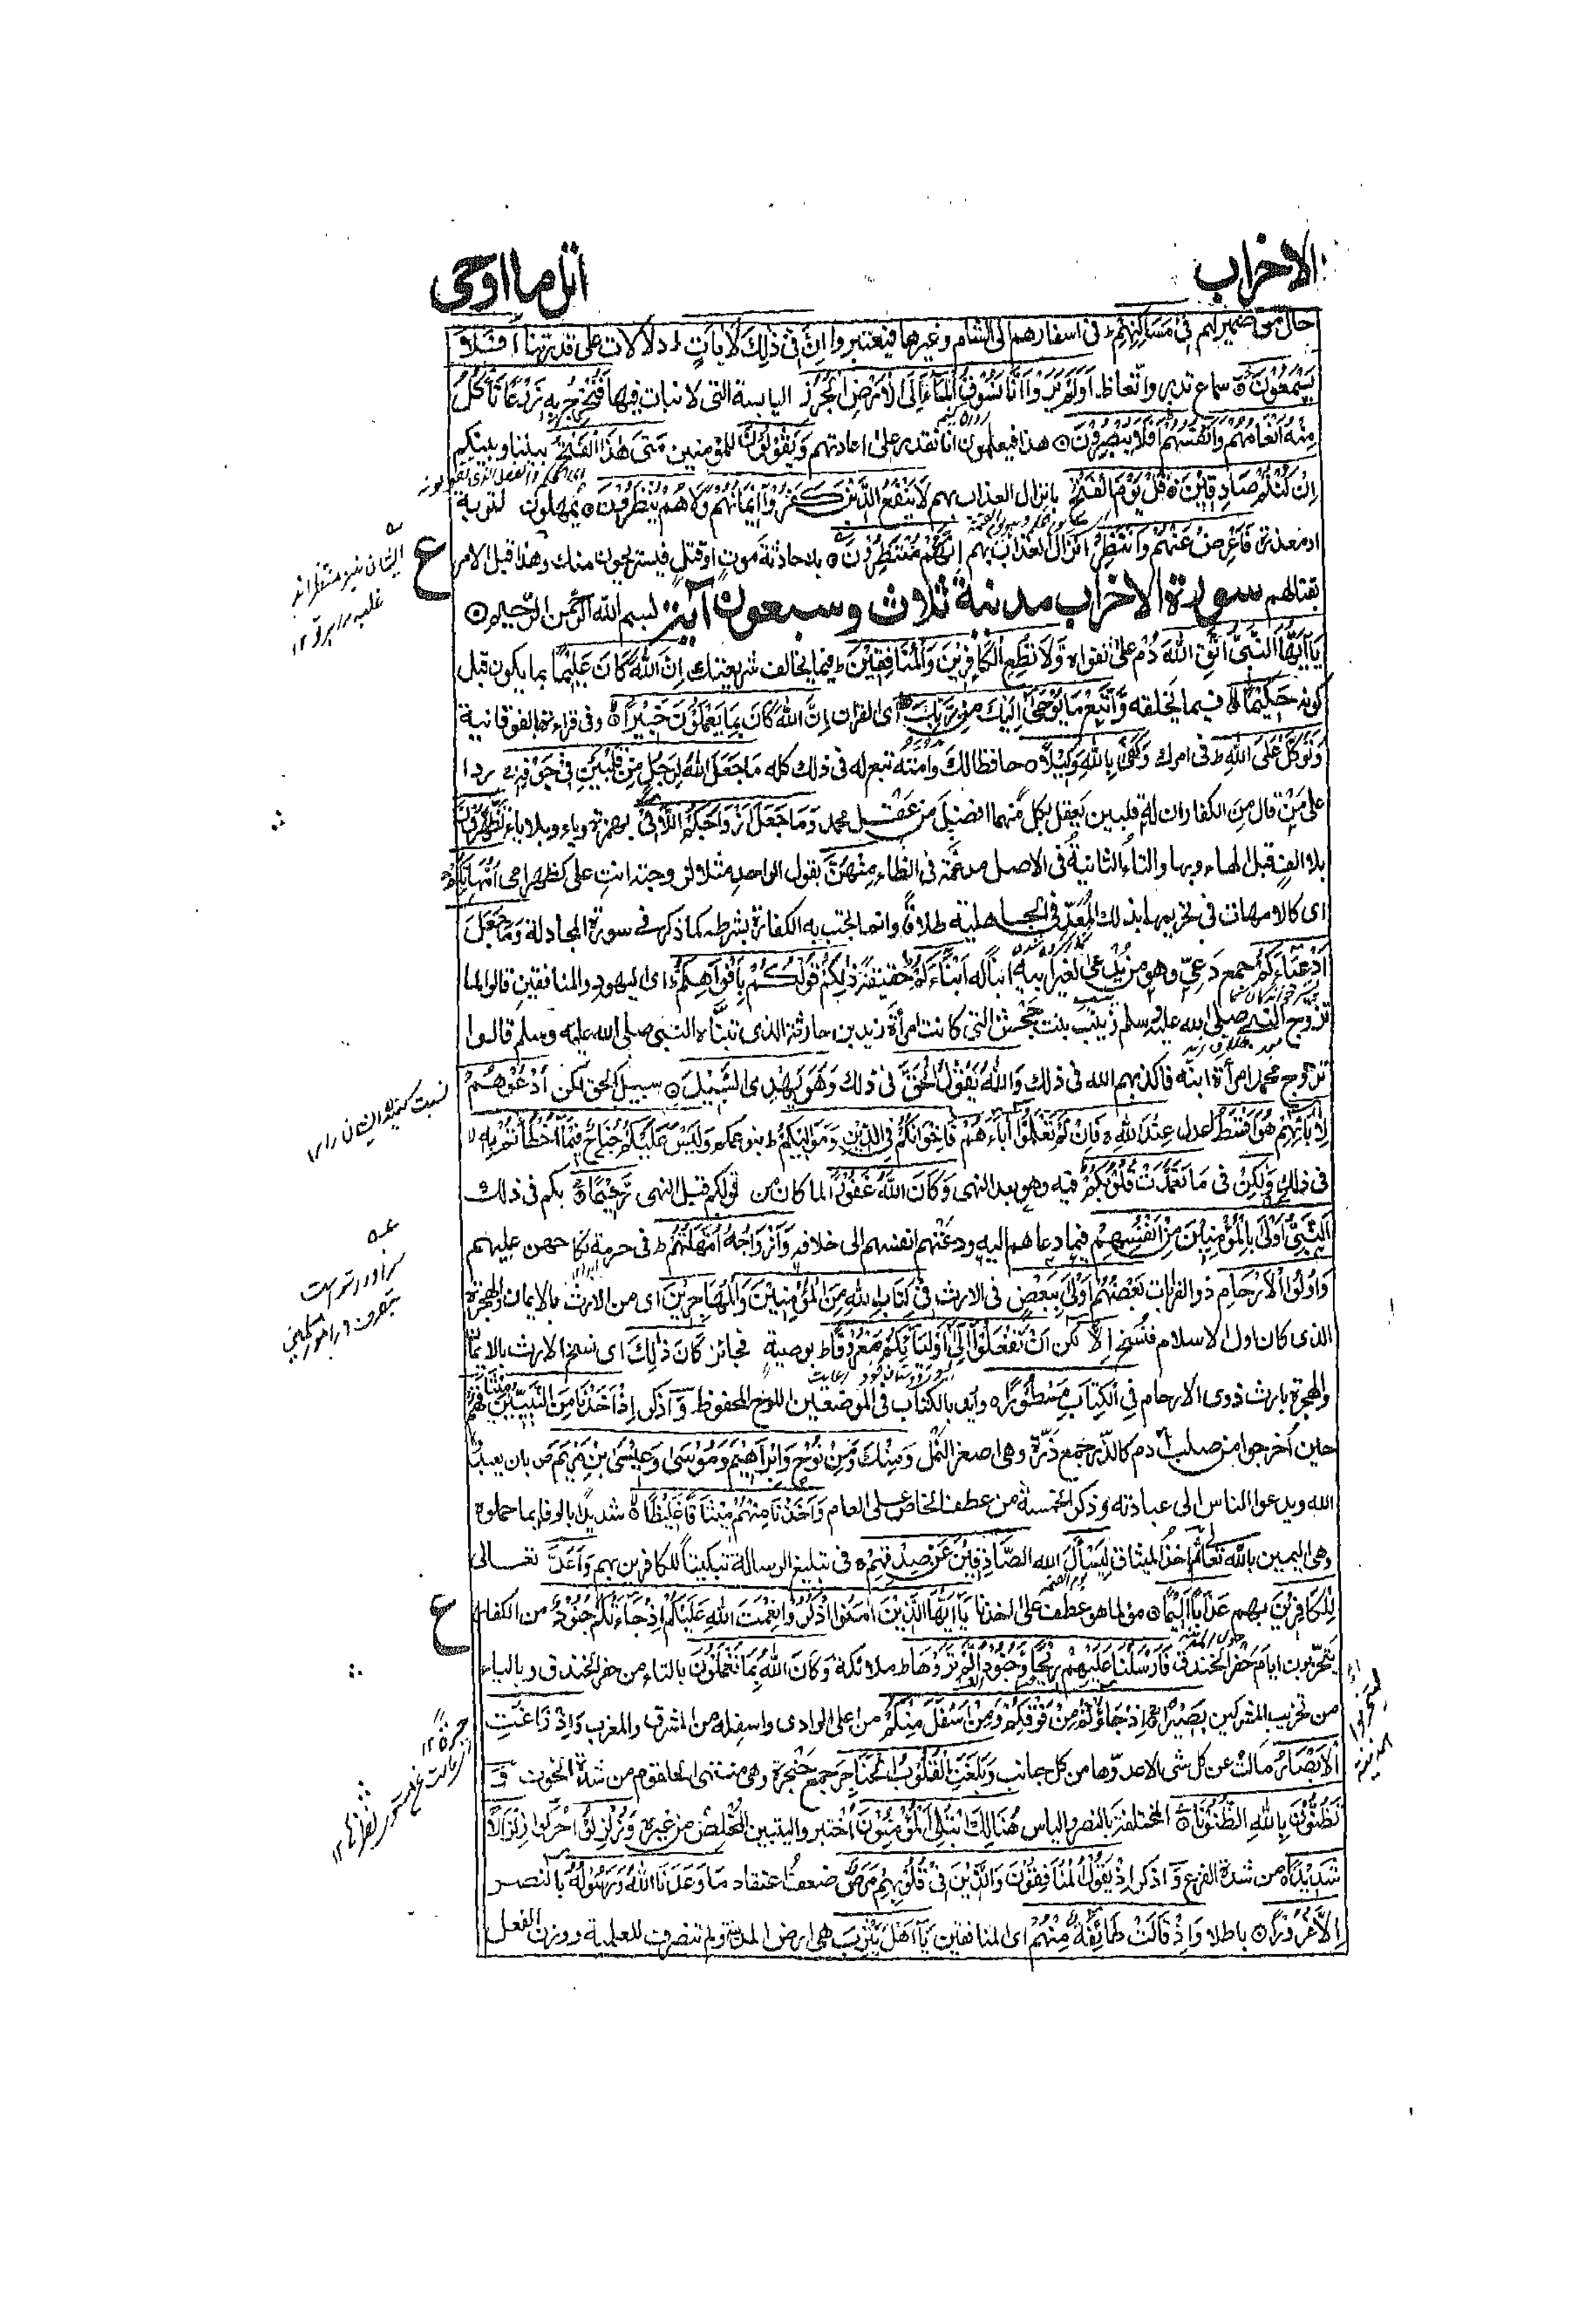 الاحزاب
اتل ما اوحی
حال من ضمير لهم فِيْ مَسَاكِنِهِمْ ط فى اسفارهم الى الشام وغيرها فيعتبروا اِنَّ فِيْ ذٰلِكَ لَاٰيَاتٍ ط دلالات على قدرتنا اَفَلَا
يَسْمَعُوْنَ ۝ سماع تدبر واتعاظ اَوَلَمْ يَرَوْا اَنَّا نَسُوْقُ الْمَآءَ اِلَى الْاَرْضِ الْجُرُزِ اليابسة التى لا نبات فيها فَنُخْرِجُ بِهٖ زَرْعًا تَاْكُلُ
مِنْهُ اَنْعَامُهُمْ وَاَنْفُسُهُمْ اَفَلَا يُبْصِرُوْنَ ۝ هذا فيعلمون انا نقدر على اعادتهم وَيَقُوْلُوْنَ للمؤمنين مَتٰى هٰذَا الْفَتْحُ بيننا وبينكم
اِنْ كُنْتُمْ صَادِقِيْنَ ۝ قُلْ يَوْمَ الْفَتْحِ بانزال العذاب بهم لَا يَنْفَعُ الَّذِيْنَ كَفَرُوْا اِيْمَانُهُمْ وَلَا هُمْ يُنْظَرُوْنَ ۝ يمهلون لتوبة
او معذرة فَاَعْرِضْ عَنْهُمْ وَانْتَظِرْ انزال العذاب بهم اِنَّهُمْ مُنْتَظِرُوْنَ ۝ بك حادثة موت او قتل فيستريحون منك وهذا قبل الامر
بقتالهم سورة الاحزاب مدنية ثلاث وسبعون آية بسم الله الرحمن الرحيم ۝
يٰٓاَيُّهَا النَّبِيُّ اتَّقِ اللهَ دُمْ على تقواه وَلَا تُطِعِ الْكَافِرِيْنَ وَالْمُنَافِقِيْنَ ط فيما يخالف شريعتك اِنَّ اللهَ كَانَ عَلِيْمًا بما يكون قبل
كونه حَكِيْمًا ۝ فيما يخلقه وَاتَّبِعْ مَا يُوْحٰى اِلَيْكَ مِنْ رَبِّكَ ط اى القران اِنَّ اللهَ كَانَ بِمَا يَعْمَلُوْنَ خَبِيْرًا ۝ وفى قراءة بالفوقانية
وَتَوَكَّلْ عَلَى اللهِ ط فى امرك وَكَفٰى بِاللهِ وَكِيْلًا ۝ حافظا لك وامته تبع له فى ذلك كله مَا جَعَلَ اللهُ لِرَجُلٍ مِنْ قَلْبَيْنِ فِيْ جَوْفِهٖ ردا
على من قال من الكفار ان له قلبين يعقل بكل منهما افضل من عقل محمد وَمَا جَعَلَ اَزْوَاجَكُمُ اللَّائِيْ بهمزة وياء وبلا ياء تُظٰهِرُوْنَ
بلا الف قبل الهاء وبها والتاء الثانية فى الاصل مدغمة فى الظاء مِنْهُنَّ بقول الواحد مثلا لزوجته انت على كظهر امى اُمَّهَاتِكُمْ
اى كالامهات فى تحريمها بذلك المُعَدّ فى الجاهلية طلاقا وانما تجب به الكفارة بشرطه كما ذكر فى سورة المجادلة وَمَا جَعَلَ
اَدْعِيَآءَكُمْ جمع دعى وهو من يدعى لغير ابيه ابنا له اَبْنَآءَكُمْ حقيقة ذٰلِكُمْ قَوْلُكُمْ بِاَفْوَاهِكُمْ ط اى اليهود والمنافقين قالوا لما
تزوج النبى صلى الله عليه وسلم زينب بنت جحش التى كانت امرأة زيد بن حارثة الذى تبناه النبى صلى الله عليه وسلم قالوا
تزوج محمد امرأة ابنه فاكذبهم الله فى ذلك وَاللهُ يَقُوْلُ الْحَقَّ فى ذلك وَهُوَ يَهْدِى السَّبِيْلَ ۝ سبيل الحق لكن اُدْعُوْهُمْ
لِاٰبَآئِهِمْ هُوَ اَقْسَطُ اعدل عِنْدَ اللهِ ۝ فَاِنْ لَمْ تَعْلَمُوْا اٰبَآءَهُمْ فَاِخْوَانُكُمْ فِي الدِّيْنِ وَمَوَالِيْكُمْ ط بنو عمكم وَلَيْسَ عَلَيْكُمْ جُنَاحٌ فِيْمَا اَخْطَاْتُمْ بِهٖ لا
فى ذلك وَلٰكِنْ فى مَا تَعَمَّدَتْ قُلُوْبُكُمْ فيه وهو بعد النهى وَكَانَ اللهُ غَفُوْرًا لما كان من قولكم قبل النهى رَحِيْمًا ۝ بكم فى ذلك
اَلنَّبِيُّ اَوْلٰى بِالْمُؤْمِنِيْنَ مِنْ اَنْفُسِهِمْ فيما دعاهم اليه ودعتهم انفسهم الى خلافه وَاَزْوَاجُهٗ اُمَّهٰتُهُمْ ط فى حرمة نكاحهن عليهم
وَاُولُوا الْاَرْحَامِ ذوو القرابات بَعْضُهُمْ اَوْلٰى بِبَعْضٍ فى الارث فِيْ كِتَابِ اللهِ مِنَ الْمُؤْمِنِيْنَ وَالْمُهَاجِرِيْنَ اى من الارث بالايمان والهجرة
الذى كان اول الاسلام فنسخ اِلَّا لكن اَنْ تَفْعَلُوْا اِلٰى اَوْلِيَآئِكُمْ مَعْرُوْفًا ط بوصية فجائز كَانَ ذٰلِكَ اى نسخ الارث بالايمان
والهجرة بارث ذوى الارحام فِي الْكِتَابِ مَسْطُوْرًا ۝ واريد بالكتاب فى الموضعين اللوح المحفوظ وَ اذكر اِذْ اَخَذْنَا مِنَ النَّبِيِّيْنَ مِيْثَاقَهُمْ
حين اخرجوا من صلب آدم كالذر جمع ذرة وهى اصغر النمل وَمِنْكَ وَمِنْ نُوْحٍ وَاِبْرَاهِيْمَ وَمُوْسٰى وَعِيْسَى ابْنِ مَرْيَمَ ص بان يعبدوا
الله ويدعوا الناس الى عبادته وذكر الخمسة من عطف الخاص على العام وَاَخَذْنَا مِنْهُمْ مِيْثَاقًا غَلِيْظًا ۝ شديدا بالوفاء بما حملوه
وهى اليمين بالله تعالى ثم اخذ الميثاق لِيَسْأَلَ الله الصَّادِقِيْنَ عَنْ صِدْقِهِمْ ۝ فى تبليغ الرسالة تبكيتا للكافرين بهم وَاَعَدَّ تعالى
لِلْكَافِرِيْنَ بهم عَذَابًا اَلِيْمًا ۝ مؤلما هو عطف على اخذنا يٰٓاَيُّهَا الَّذِيْنَ اٰمَنُوا اذْكُرُوْا نِعْمَتَ اللهِ عَلَيْكُمْ اِذْ جَآءَتْكُمْ جُنُوْدٌ من الكفار
متحزبون ايام حفر الخندق فَاَرْسَلْنَا عَلَيْهِمْ رِيْحًا وَجُنُوْدًا لَمْ تَرَوْهَا ط ملائكة وَكَانَ اللهُ بِمَا تَعْمَلُوْنَ بالتاء من حفر الخندق وبالياء
من تحزيب المشركين بَصِيْرًا ۝ اِذْ جَآءُوْكُمْ مِنْ فَوْقِكُمْ وَمِنْ اَسْفَلَ مِنْكُمْ من اعلى الوادى واسفله من المشرق والمغرب وَاِذْ زَاغَتِ
الْاَبْصَارُ مالت عن كل شئ الا عدوّها من كل جانب وَبَلَغَتِ الْقُلُوْبُ الْحَنَاجِرَ جمع حنجرة وهى منتهى الحلقوم من شدة الخوف وَ
تَظُنُّوْنَ بِاللهِ الظُّنُوْنَا ۝ المختلفة بالنصر والياس هُنَالِكَ ابْتُلِيَ الْمُؤْمِنُوْنَ اختبروا ليتبين المخلص من غيره وَزُلْزِلُوْا حركوا زِلْزَالًا
شَدِيْدًا ۝ من شدة الفزع وَ اذكر اِذْ يَقُوْلُ الْمُنَافِقُوْنَ وَالَّذِيْنَ فِيْ قُلُوْبِهِمْ مَرَضٌ ضعف اعتقاد مَا وَعَدَنَا اللهُ وَرَسُوْلُهٗ بالنصر
اِلَّا غُرُوْرًا ۝ باطلا وَاِذْ قَالَتْ طَآئِفَةٌ مِنْهُمْ اى المنافقين يٰٓاَهْلَ يَثْرِبَ هى ارض المدينة ولم تنصرف للعلمية ووزن الفعل
ع
ايشان نيز منتظر اند
ع